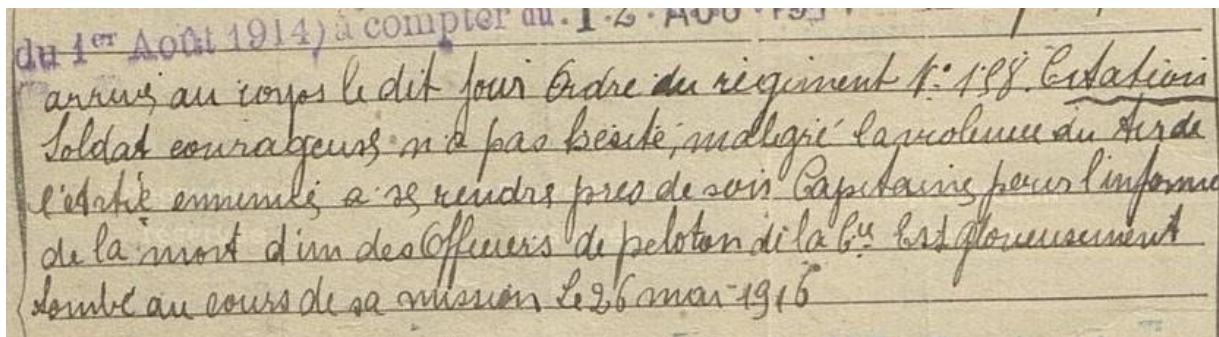 du 1er Août 1914) à compter du 12 AOU
arrivé au corps le dit jour Ordre du régiment N° 158. Citation
Soldat courageux n'a pas hésité, malgré la violence du tir de
l'Artie ennemie a se rendre près de son Capitaine pour l'informer
de la mort d'un des Officiers de peloton de la Cie Est glorieusement
tombé au cours de sa mission le 26 mai 1916